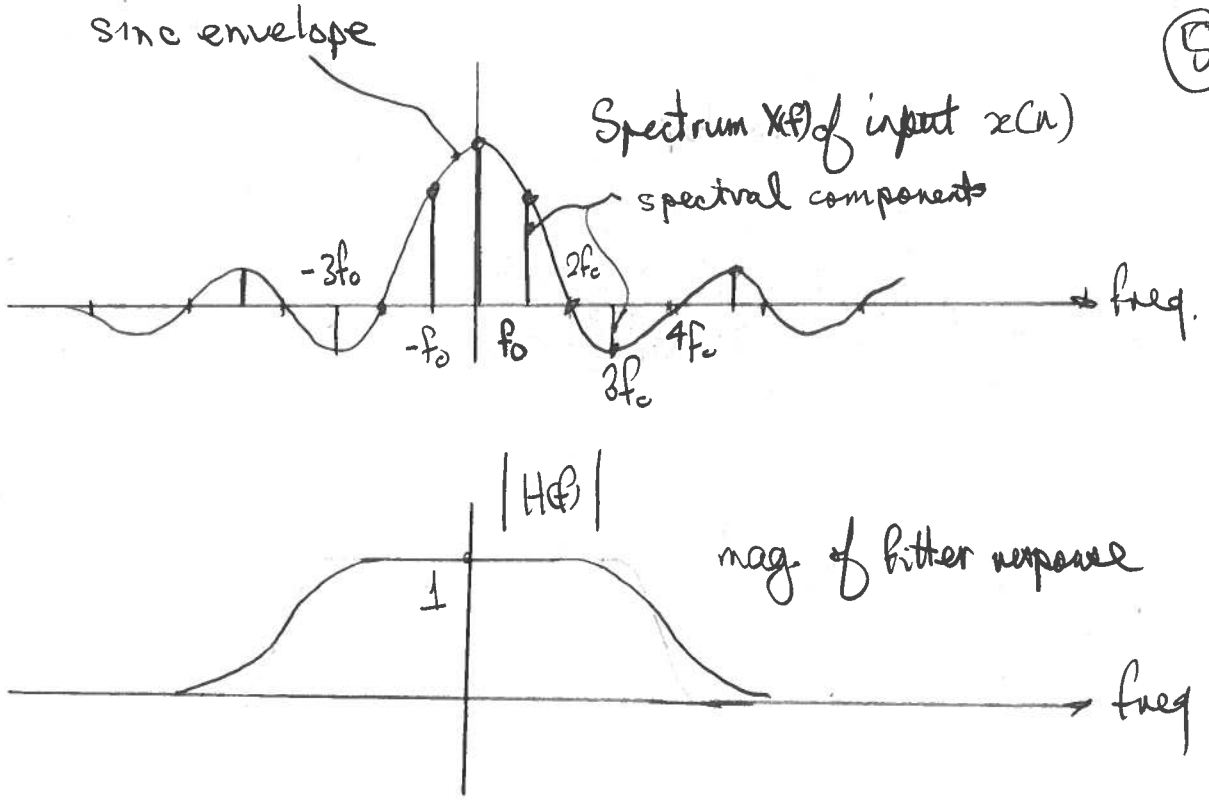 sinc envelope
8
Spectrum X(f) of input x(n)
spectral components
-3f₀
2f₀
freq.
-f₀
f₀
4f₀
3f₀
|H(f)|
mag. of filter response
1
freq